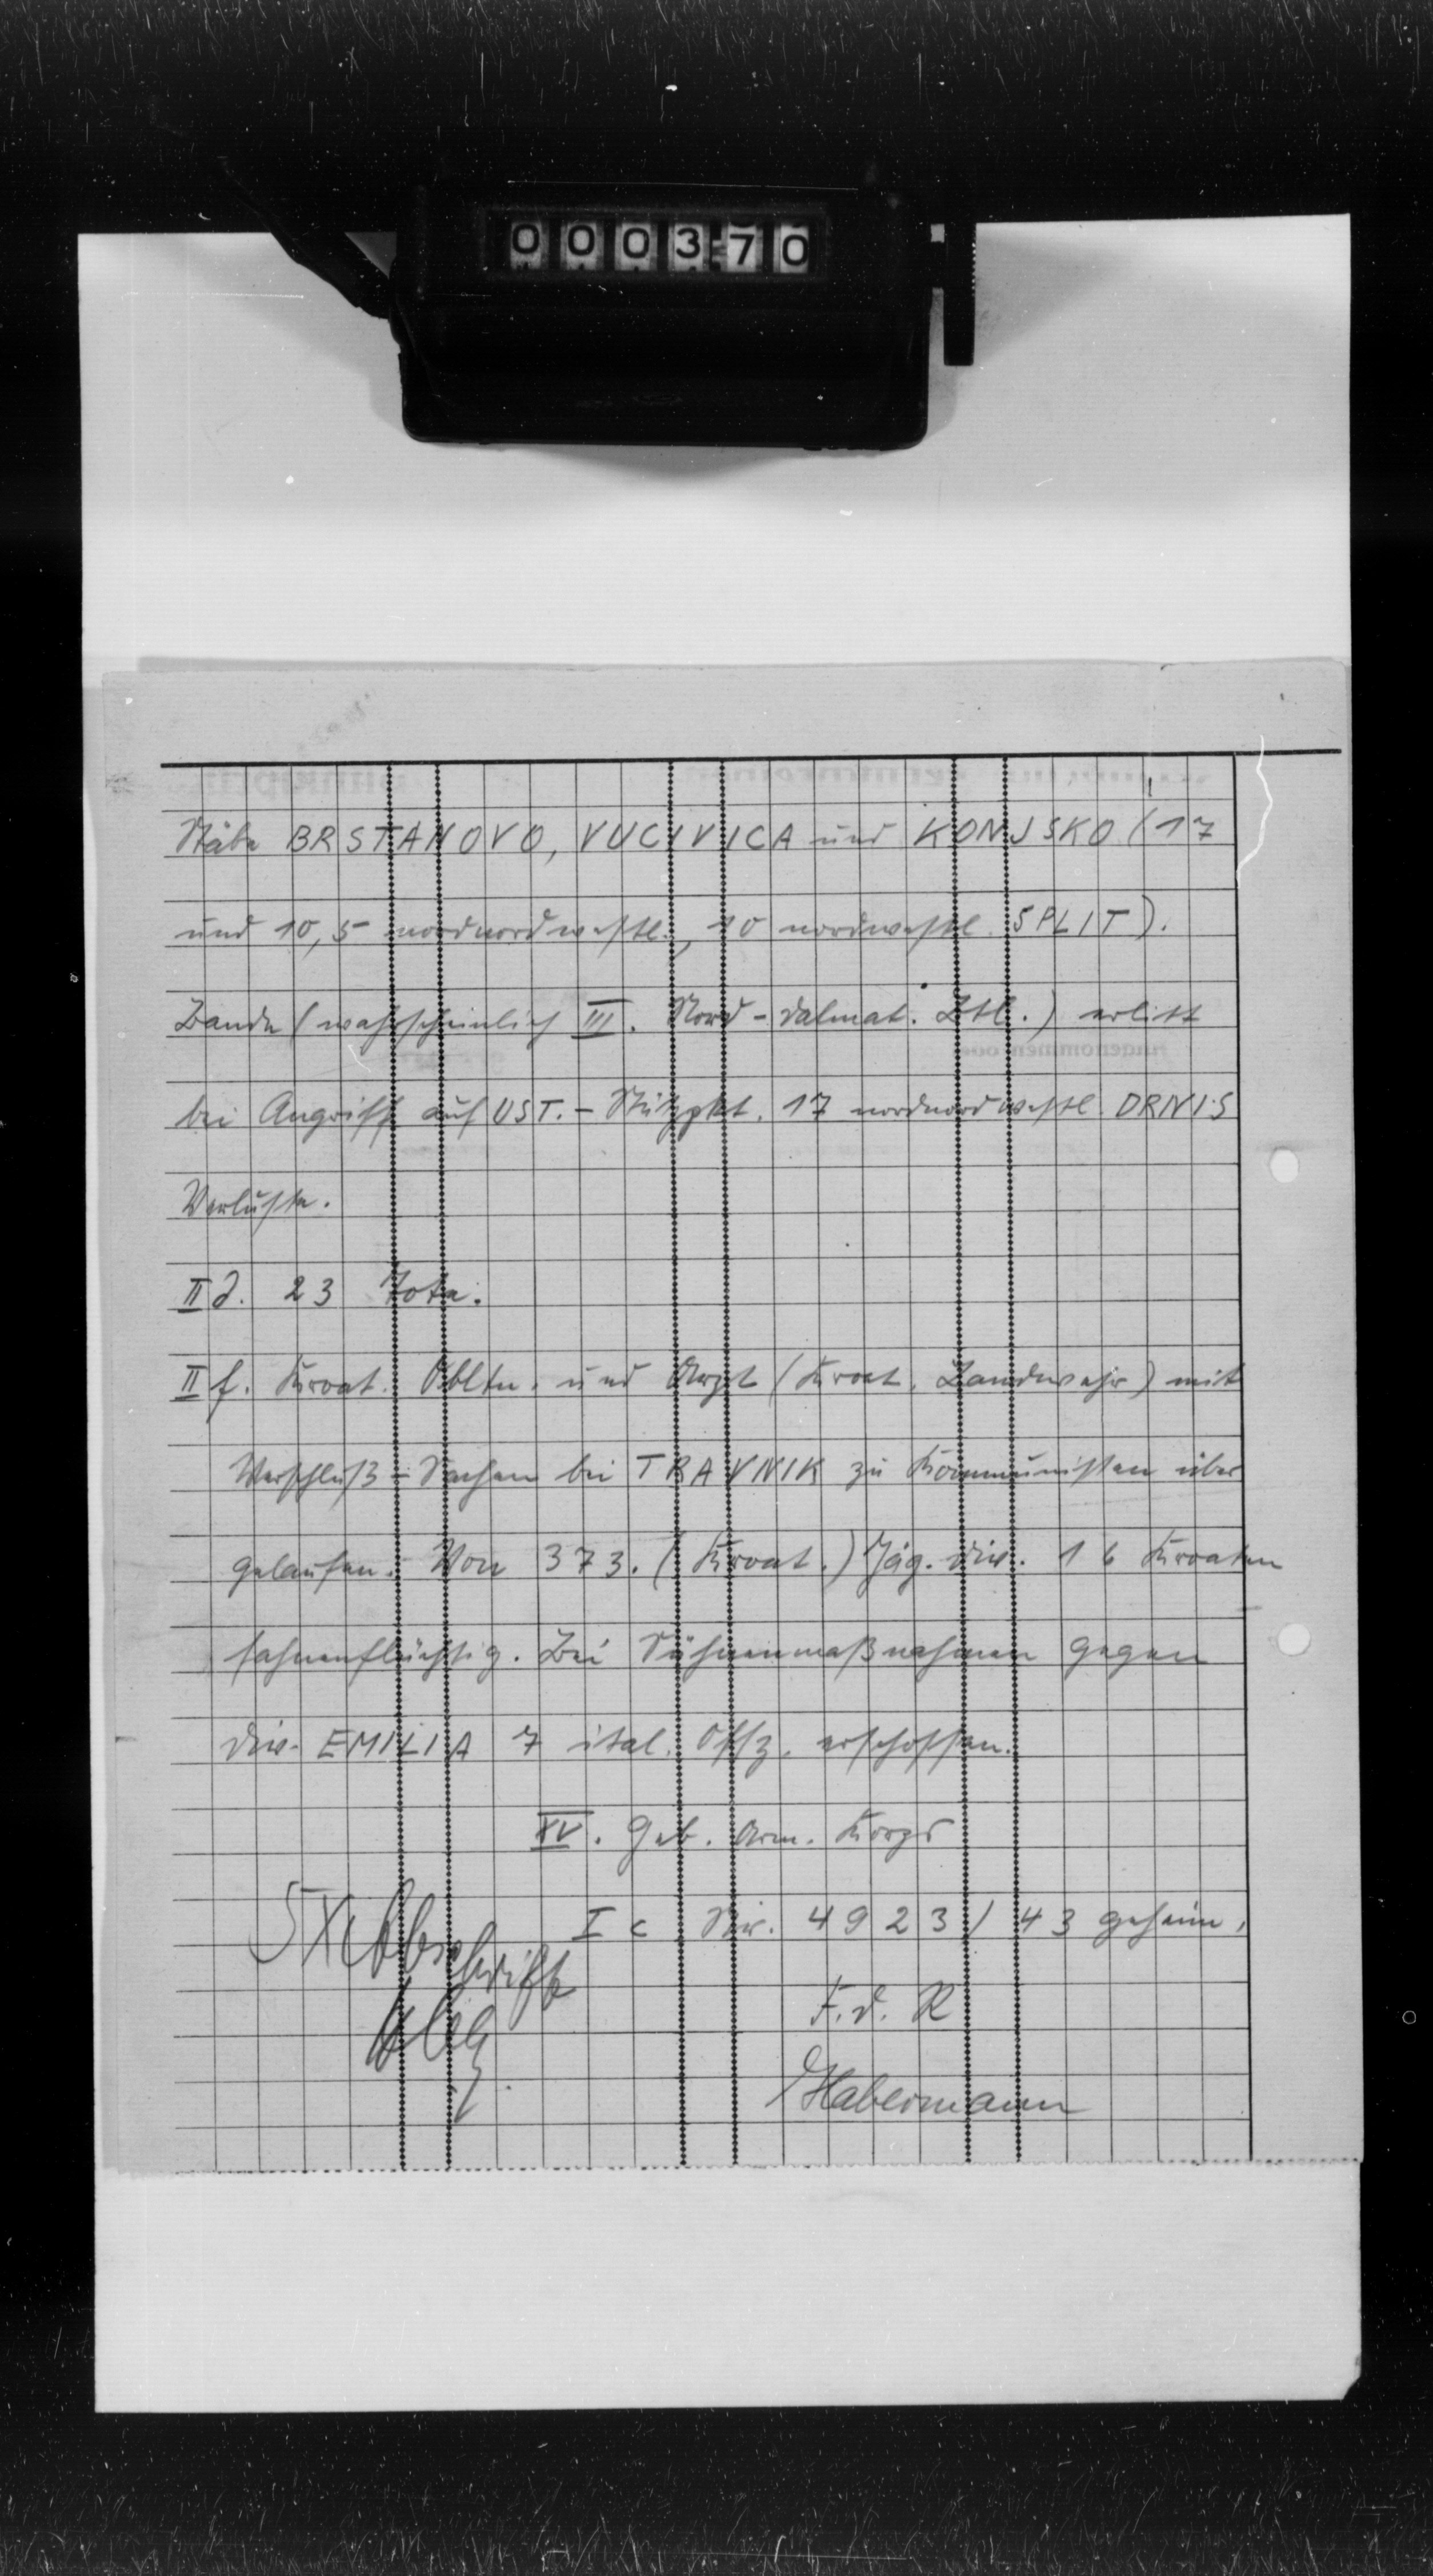 000370
Stäbe BRSTANOVO, VUCIVICA und KONJSKO (17
und 10,5 nordnordwestl., 10 nordwestl. SPLIT).
Bande (wahrscheinlich III. Nord-Dalmat. Btl.) erlitt
bei Angriff auf UST.-Stützpkt. 17 nordnordwestl DRNIS
Verluste.
II d. 23 Tote.
II f. Kroat. Obltn. und Arzt (Kroat. Landwehr) mit
Verschluß-Sachen bei TRAVNIK zu Kommunisten über
gelaufen. Von 373. (Kroat.) Jäg. Div. 16 Kroaten
fahnenflüchtig. Bei Sühnemaßnahmen gegen
Div. EMILIA 7 ital. Offz. erschossen.
XV. Geb. Arm. Korps
Ic Nr. 4923/43 geheim.
5 x Abschrift
F.d.R
Habermann